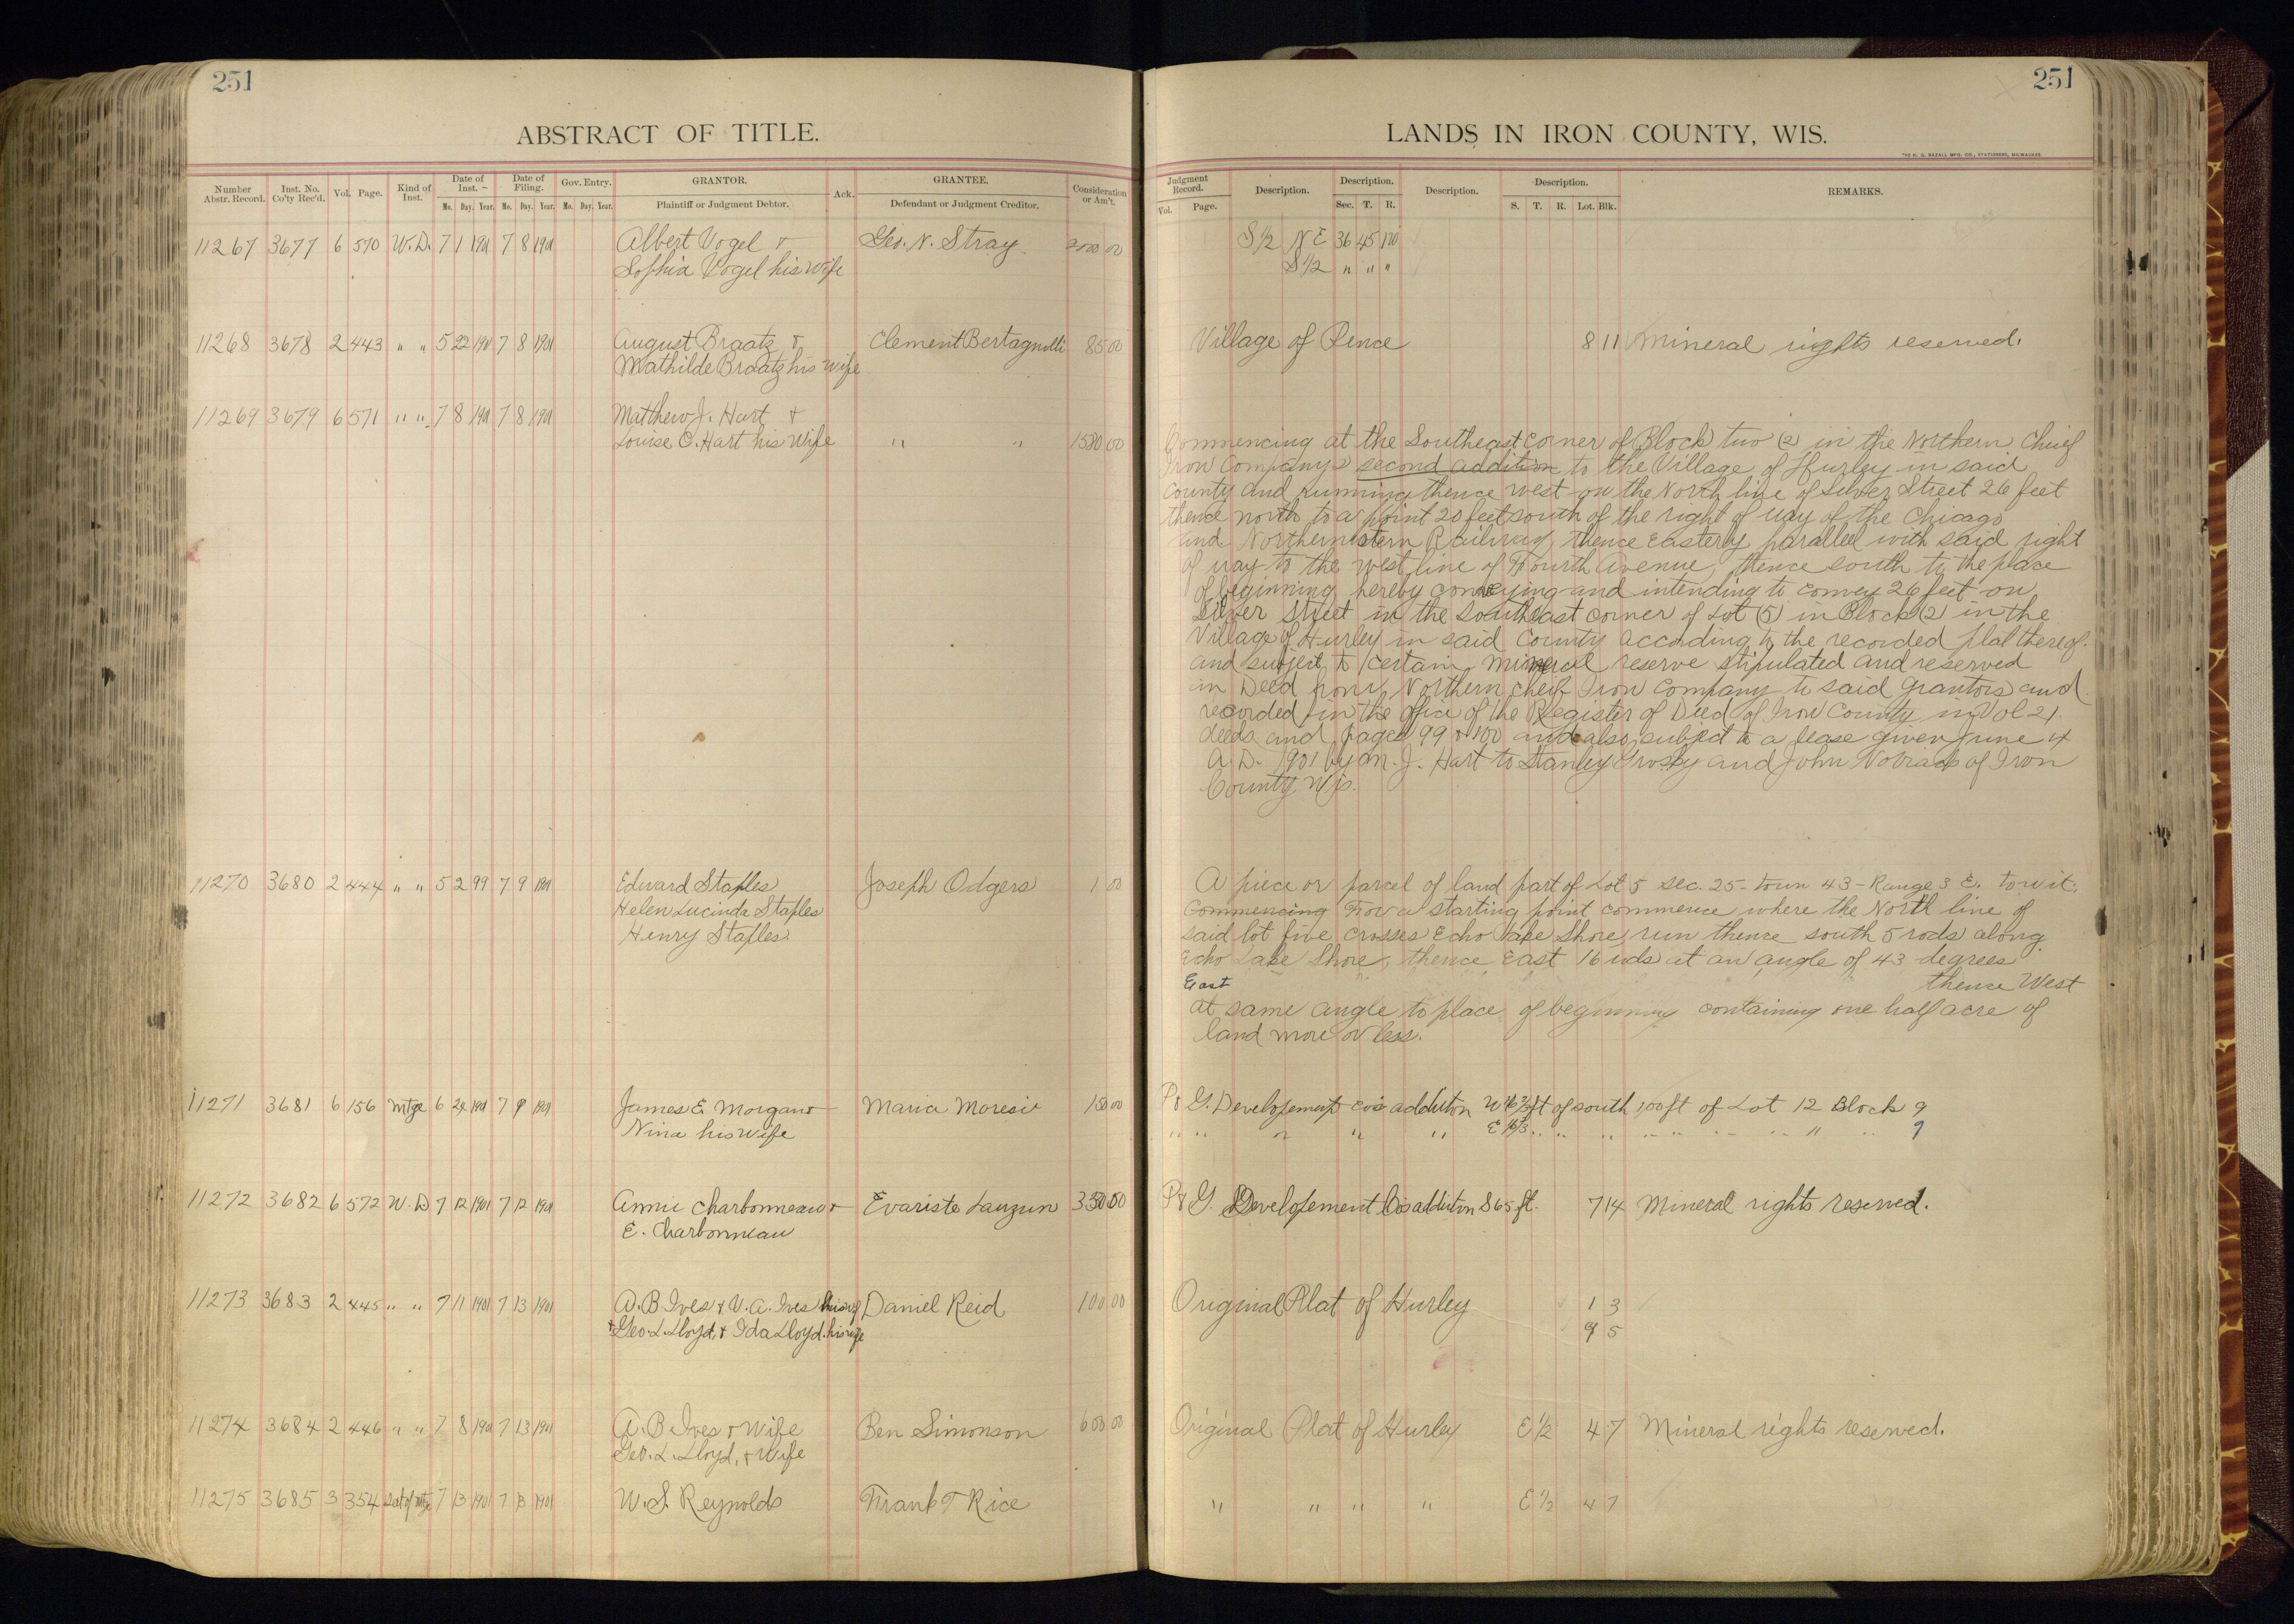 251
ABSTRACT OF TITLE.
Number Abstr. Record. Inst. No. Co'ty Rec'd. Vol. Page. Kind of Inst. Date of Inst. Mo. Day. Year. Date of Filing. Mo. Day. Year. Gov. Entry. Mo. Day. Year. GRANTOR. Plaintiff or Judgment Debtor. Ack. GRANTEE. Defendant or Judgment Creditor. Consideration or Am't.
11267 3677 6 570 W.D. 7 1 1901 7 8 1901 Albert Vogel & Geo. N. Stray 00
Sophia Vogel his Wife
11268 3678 2 443 " " 5 22 1901 7 8 1901 August Braatz & Clement Bertagnolli 85 00
Mathilde Braatz his Wife
11269 3679 6 571 " " 7 8 1901 7 8 1901 Matthew J. Hart &
Louise C. Hart his Wife " " 1500 00
11270 3680 2 444 " " 5 2 99 7 9 1901 Edward Staples Joseph Odgers 1 00
Helen Lucinda Staples
Henry Staples
11271 3681 6 156 Mtge 6 24 1901 7 9 1901 James E. Morgan & Maria Moresi 150 00
Nina his Wife
11272 3682 6 572 W.D 7 12 1901 7 12 1901 Annie Charbonneau & Evariste Lauzun
E. Charbonneau
11273 3683 2 445 " " 7 11 1901 7 13 1901 A. B Ives & V. A. Ives his wf Daniel Reid 100 00
& Geo. L. Lloyd, & Ida Lloyd. his wife
11274 3684 2 446 " " 7 8 1901 7 13 1901 A. B Ives & Wife Ben Simonson 600 00
Geo. L. Lloyd, & Wife
11275 3685 3 354 Sat of Mtge 7 13 1901 7 13 1901 W. S. Reynolds Frank T Rice
251
LANDS IN IRON COUNTY, WIS.
THE H. G. RAZALL MFG. CO., STATIONERS, MILWAUKEE.
Judgment Record. Vol. Page. Description. Description. Sec. T. R. Description. Description. S. T. R. Lot. Blk. REMARKS.
S 1/2 NE 36 45
S 1/2 " " "
Village of Pence 8 11 Mineral rights reserved.
Commencing at the Southeast corner of Block two (2) in the Northern Chief
Iron Company's second addition to the Village of Hurley in said
County and running thence west on the North line of Silver Street 26 feet
thence north to a point 20 feet south of the right of way of the Chicago
and Northwestern Railway, thence Easterly parallel with said right
of way to the west line of Fourth Avenue, thence south to the place
of beginning hereby conveying and intending to convey 26 feet on
Silver Street in the Southeast corner of Lot (5) in Block (2) in the
Village of Hurley in said County according to the recorded plat thereof.
and subject to certain mineral reserve stipulated and reserved
in Deed from Northern Cheif Iron Company to said grantors and
recorded in the office of the Register of Deed of Iron County in Vol 21
deeds and pages 99 & 100 and also subject to a lease given June 4
A.D. 1901 by M. J. Hart to Stanley and John of Iron
County Wis.
A piece or parcel of land part of Lot 5 sec. 25 - town 43 - Range 3 E. to wit:
Commencing For a starting point commence where the North line of
said lot five crosses Echo lake Shore, run thence south 5 rods along
Echo Lake Shore, thence East 16 rods at an angle of 43 degrees
East thence West
at same angle to place of beginning containing one half acre of
land more or less.
P & G. Developement Co's addition W 16 2/3 ft of south 100 ft of Lot 12 Block 9
" " " " " E 16 2/3 " " " " " " " " " 9
P & G. Developement Co's addition S 65 ft. 7 14 Mineral rights reserved.
Original Plat of Hurley 1 3
9 5
Original Plat of Hurley E 1/2 4 7 Mineral rights reserved.
" " " " E 1/2 4 7